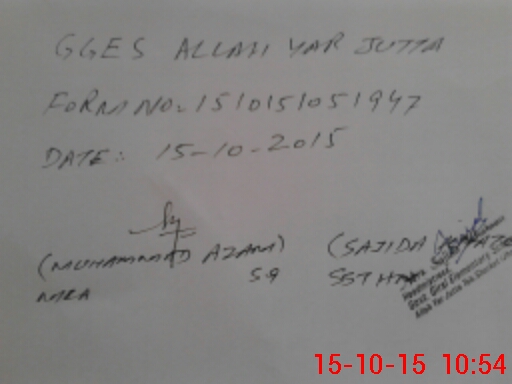 GGES ALLAH YAR JUTTA
FORM NO. 1510151051947
DATE: 15-10-2015
(MUHAMMAD AZAM) (SAJIDA
MEA 59 SST
Headmistress
Govt. Girls Elementary
Allah Yar Jutta
15-10-15 10:54